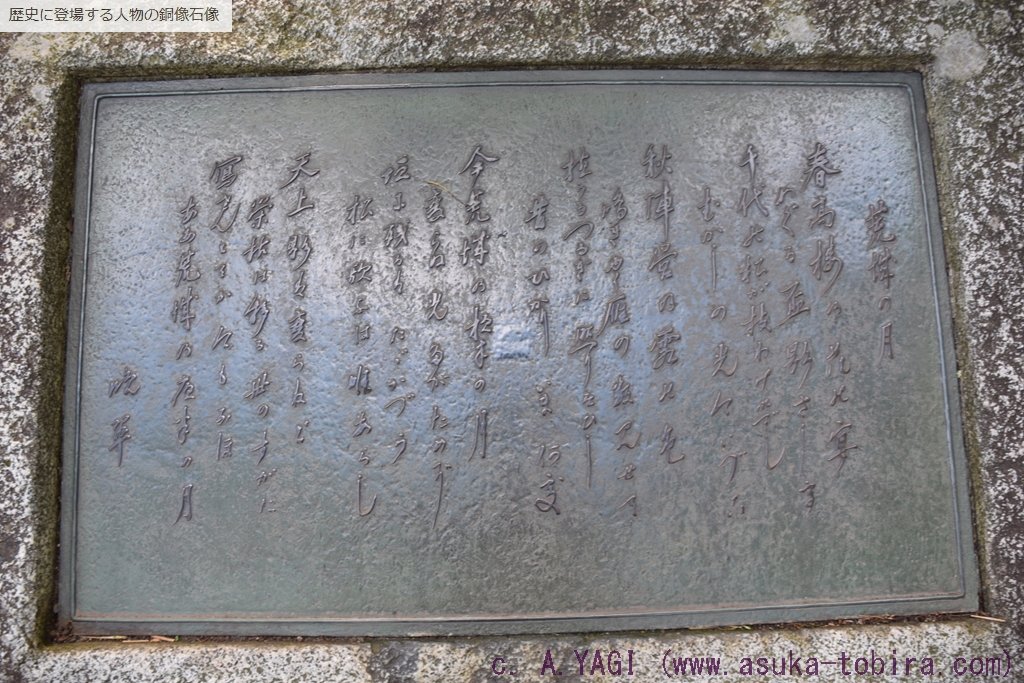 歴史に登場する人物の銅像石像
荒城の月
春高楼の花の宴
めぐる盃影さして
千代の松が枝わけ出でし
むかしの光今いづこ
秋陣営の霜の色
鳴き行く雁の数見せて
植うるつるぎに照りそひし
昔のひかり今何処
今荒城の夜半の月
変らぬ光たがためぞ
垣に残るはたゞかづら
松に歌ふは唯あらし
天上影は変らねど
栄枯は移る世のすがた
写さんとてか今もなほ
あゝ荒城の夜半の月
晩翠
c. A.YAGI (www.asuka-tobira.com)